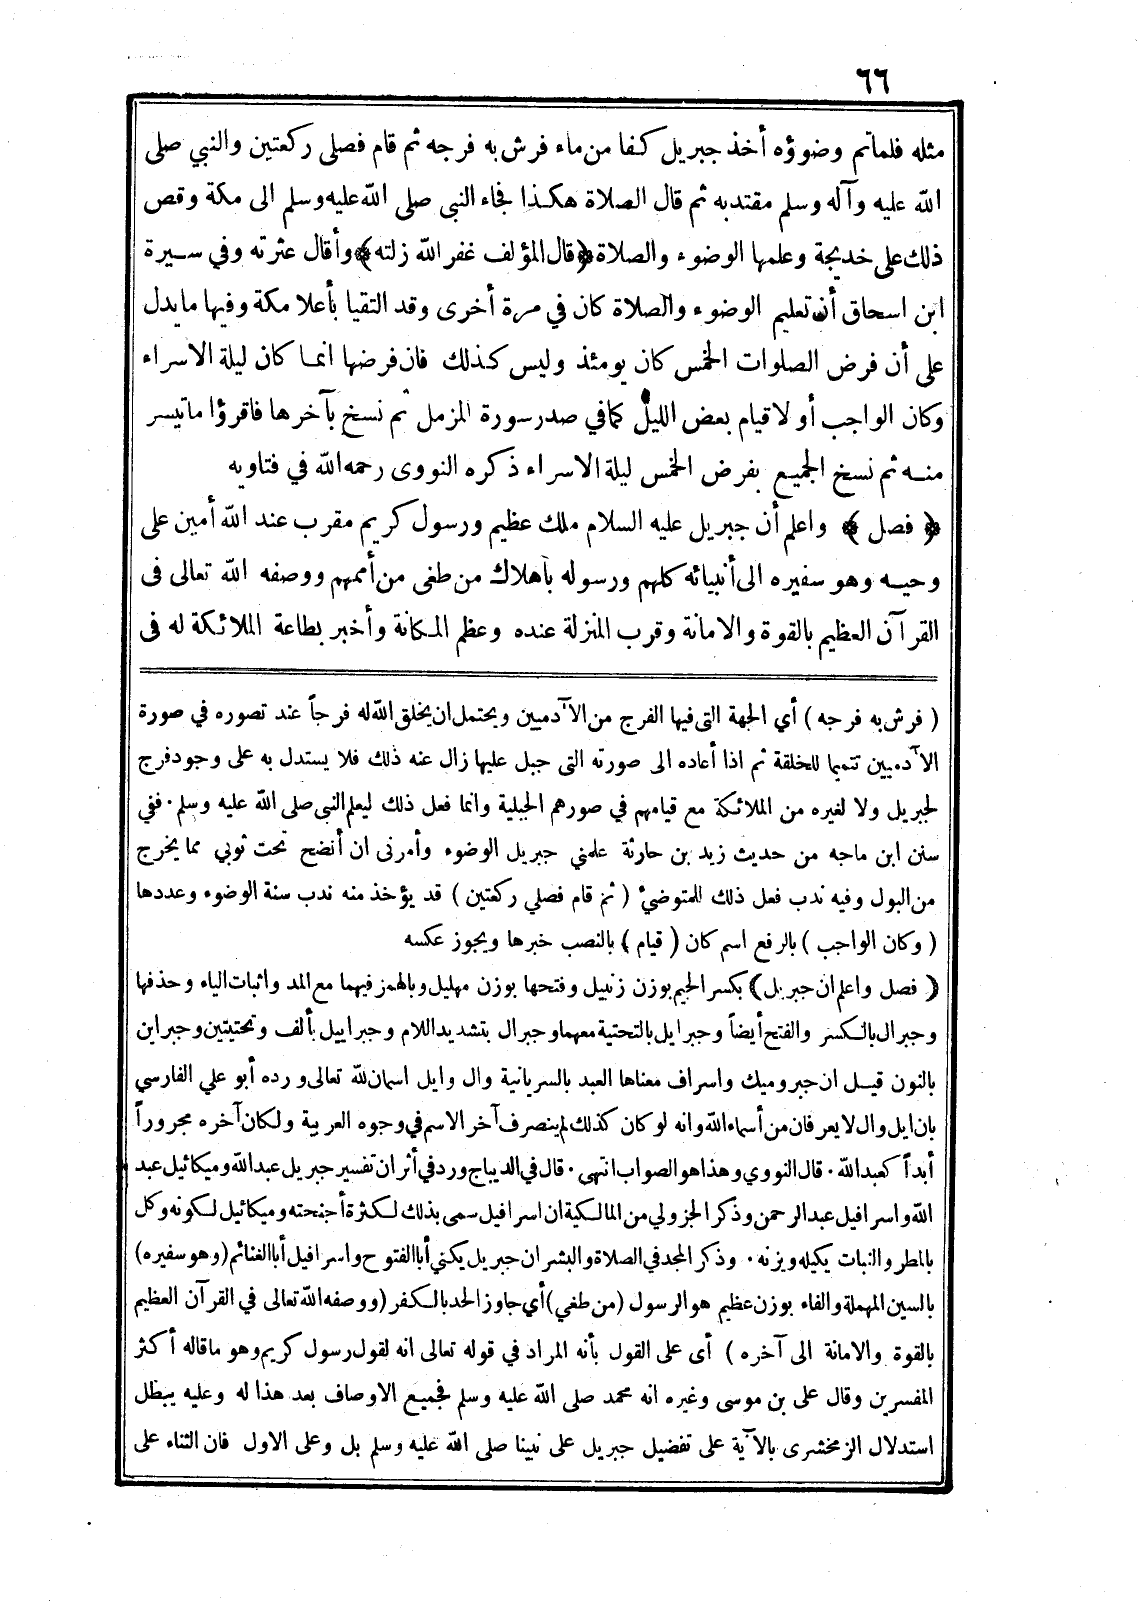 ٦٦
مثله فلما تم وضوؤه أخذ جبريل كفا من ماء فرش به فرجه ثم قام فصلى ركعتين والنبي صلى
الله عليه وآله وسلم مقتد به ثم قال الصلاة هكذا فجاء النبى صلى الله عليه وسلم الى مكة وقص
ذلك على خديجة وعلمها الوضوء والصلاة ﴿قال المؤلف غفر الله زلته﴾ وأقال عثرته وفي سيرة
ابن اسحاق أن تعليم الوضوء والصلاة كان في مرة أخرى وقد التقيا بأعلا مكة وفيها ما يدل
على أن فرض الصلوات الخمس كان يومئذ وليس كذلك فان فرضها انما كان ليلة الاسراء
وكان الواجب أولا قيام بعض الليل كما في صدر سورة المزمل ثم نسخ بآخرها فاقرؤا ما تيسر
منه ثم نسخ الجميع بفرض الخمس ليلة الاسراء ذكره النووى رحمه الله في فتاويه
﴿ فصل ﴾ واعلم أن جبريل عليه السلام ملك عظيم ورسول كريم مقرب عند الله أمين على
وحيه وهو سفيره الى أنبيائه كلهم ورسوله بأهلاك من طغى من أممهم ووصفه الله تعالى فى
القرآن العظيم بالقوة والامانة وقرب المنزلة عنده وعظم المكانة وأخبر بطاعة الملائكة له فى
( فرش به فرجه ) أي الجهة التى فيها الفرج من الآدميين ويحتمل ان يخلق الله له فرجاً عند تصوره في صورة
الآدميين تتميما للخلقة ثم اذا أعاده الى صورته التى جبل عليها زال عنه ذلك فلا يستدل به على وجود فرج
لجبريل ولا لغيره من الملائكة مع قيامهم في صورهم الجبلية وانما فعل ذلك ليعلم النبى صلى الله عليه وسلم . ففي
سنن ابن ماجه من حديث زيد بن حارثة علمني جبريل الوضوء وأمرنى ان أنضح تحت ثوبي مما يخرج
من البول وفيه ندب فعل ذلك للمتوضئ ( ثم قام فصلي ركعتين ) قد يؤخذ منه ندب سنة الوضوء وعددها
( وكان الواجب ) بالرفع اسم كان ( قيام ) بالنصب خبرها ويجوز عكسه
( فصل واعلم ان جبريل ) بكسر الجيم بوزن زنبيل وفتحها بوزن مهليل وبالهمز فيهما مع المد واثبات الياء وحذفها
وجبرال بالكسر والفتح أيضاً وجبرايل بالتحتية معهما وجبرال بتشديد اللام وجبراييل بألف وتحتيتين وجبراين
بالنون قيل ان جبر وميك واسراف معناها العبد بالسريانية وال وايل اسمان لله تعالى ورده أبو علي الفارسي
بان ايل وال لا يعرفان من أسماء الله وانه لو كان كذلك لم ينصرف آخر الاسم في وجوه العربية ولكان آخره مجروراً
أبداً كعبد الله . قال النووي وهذا هو الصواب انتهى . قال في الديباج ورد في أثر ان تفسير جبريل عبد الله وميكائيل عبد
الله واسرافيل عبد الرحمن وذكر الجزولي من المالكية ان اسرافيل سمى بذلك لكثرة أجنحته وميكائيل لكونه وكل
بالمطر والنبات يكيله ويزنه . وذكر المجد في الصلاة والبشر ان جبريل يكني أبا الفتوح واسرافيل أبا الغنائم ( وهو سفيره )
بالسين المهملة والفاء بوزن عظيم هو الرسول ( من طغي ) أي جاوز الحد بالكفر ( ووصفه الله تعالى في القرآن العظيم
بالقوة والامانة الى آخره ) أى على القول بأنه المراد في قوله تعالى انه لقول رسول كريم وهو ما قاله أكثر
المفسرين وقال على بن موسى وغيره انه محمد صلى الله عليه وسلم فجميع الاوصاف بعد هذا له وعليه يبطل
استدلال الزمخشرى بالآية على تفضيل جبريل على نبينا صلى الله عليه وسلم بل وعلى الاول فان الثناء على